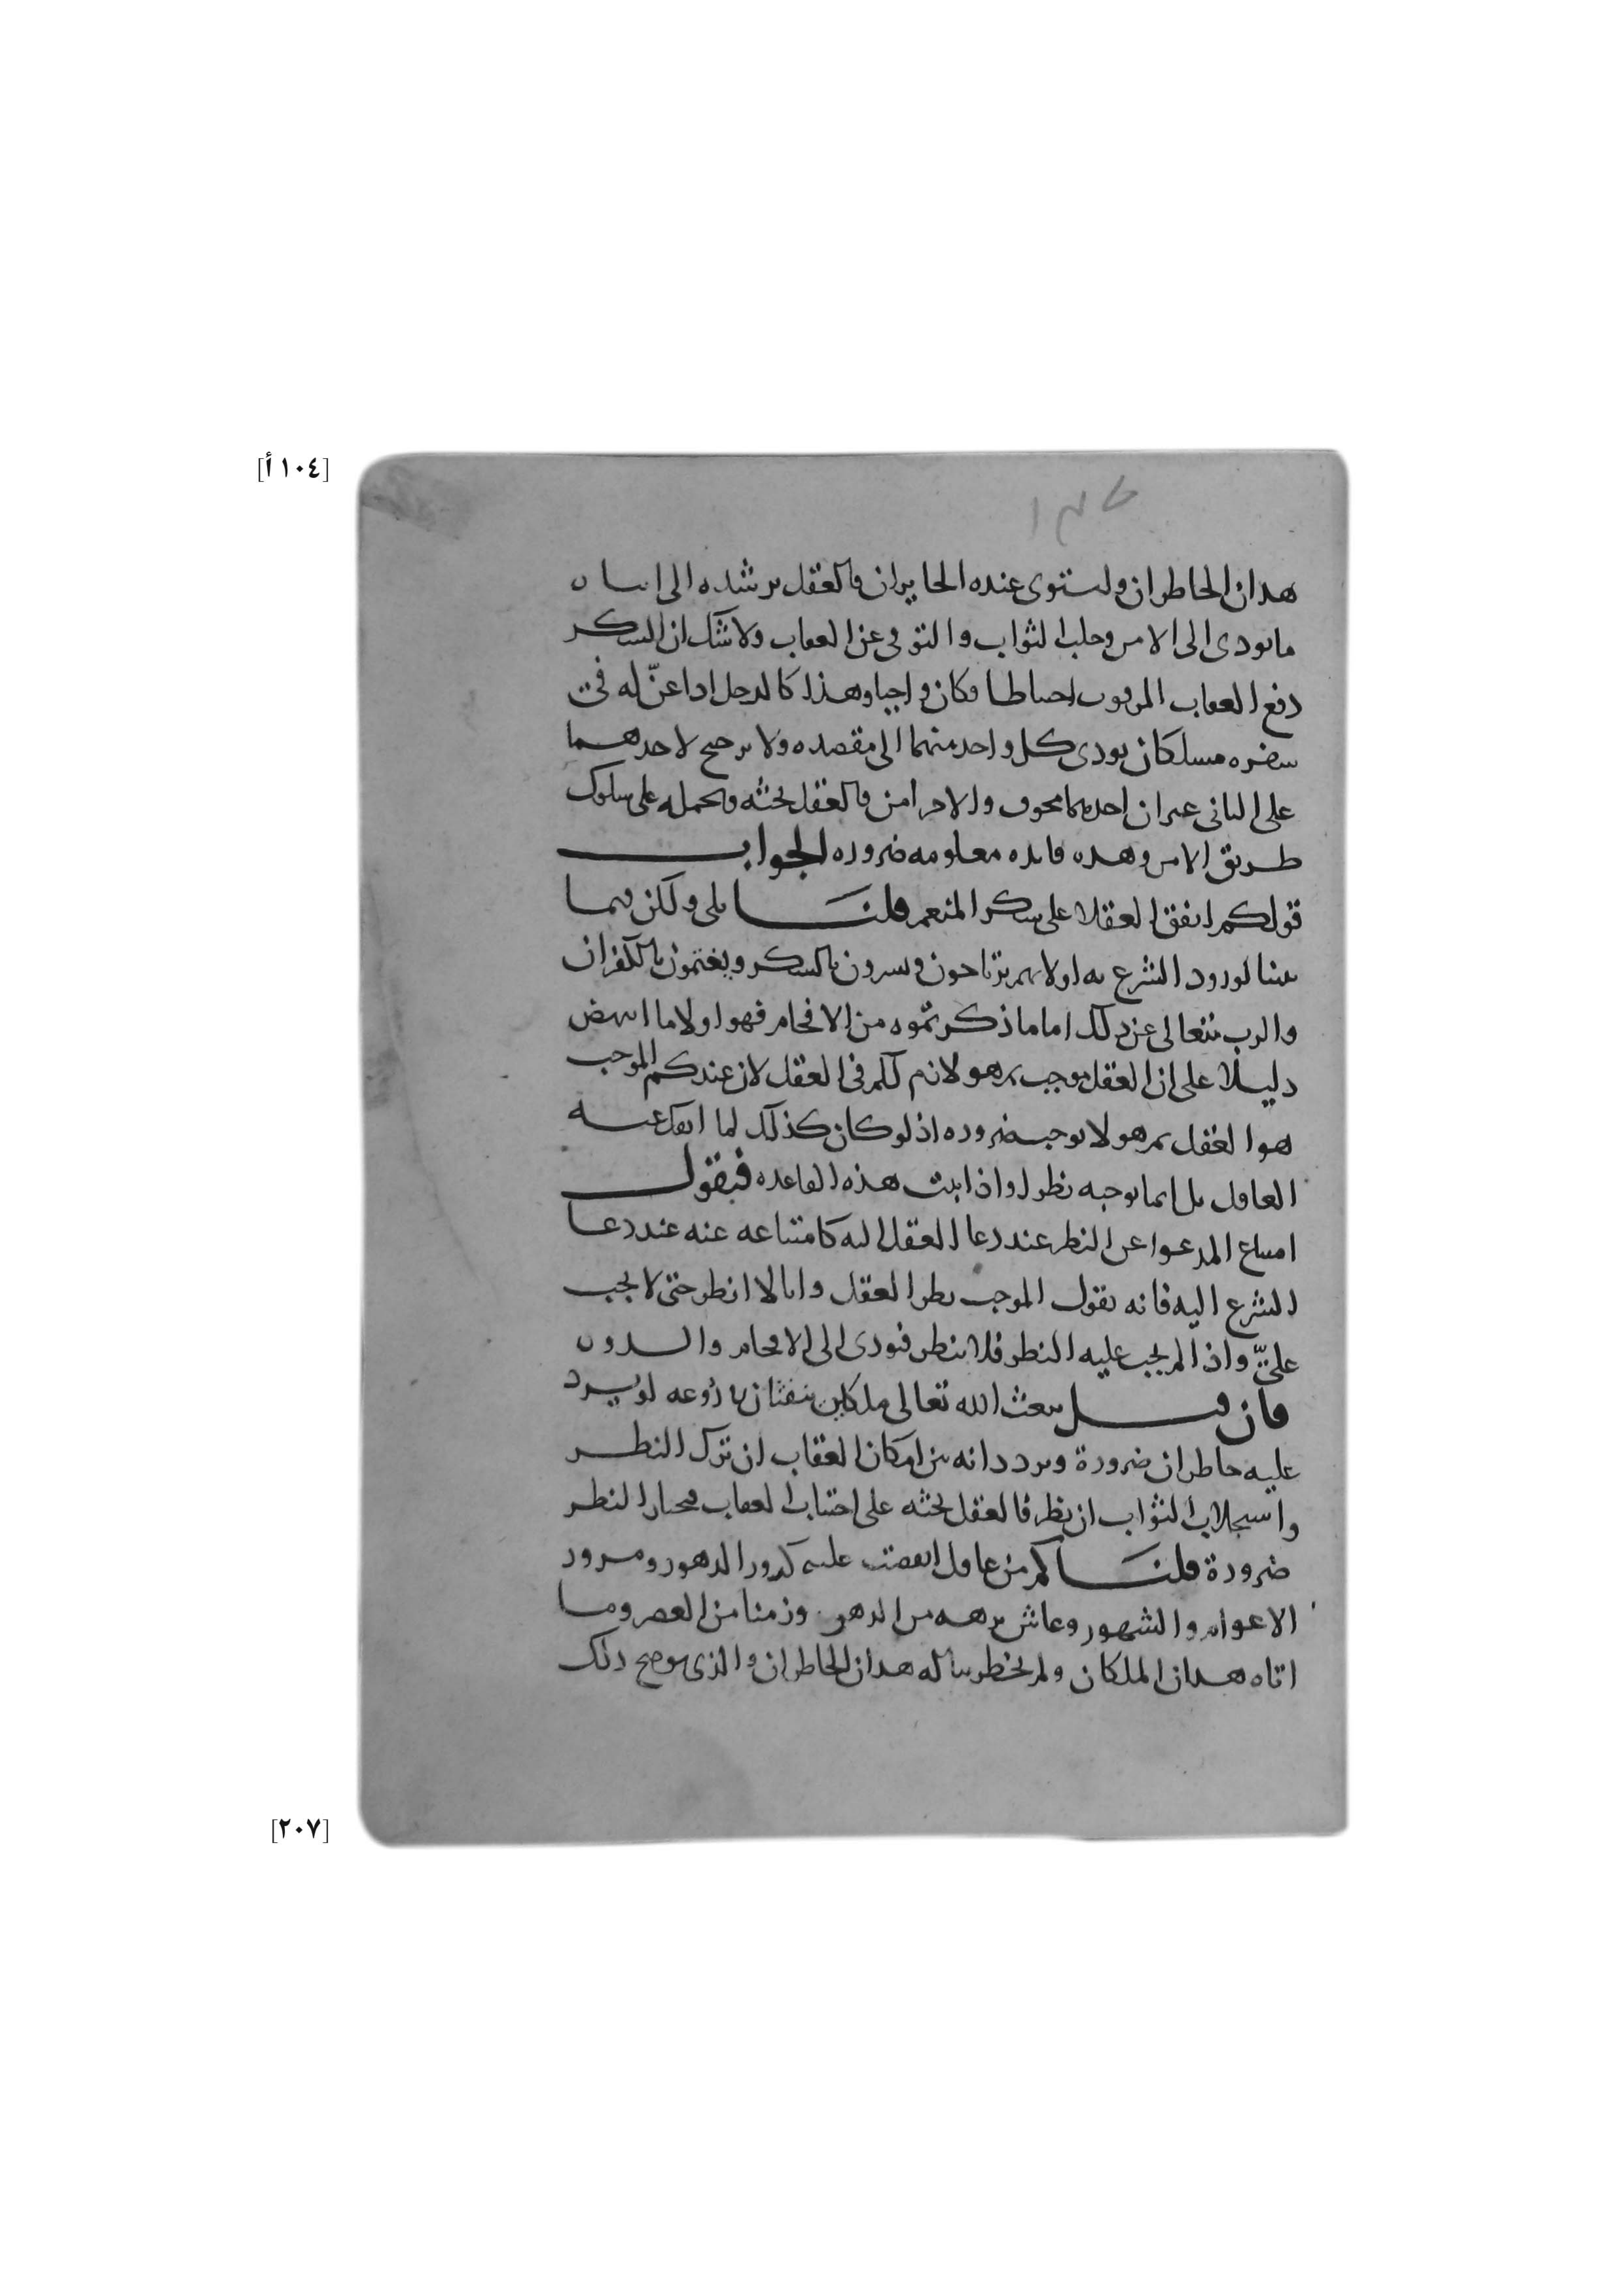 [١٠٤ أ]
١٣٦
هذان الخاطران ولستوى عنده الجايزان فالعقل يرشده الى اتيان
ما يودى الى الامن وجلب الثواب والتوقى عن العقاب ولا شك ان الشكر
دفع العقاب المرهوب احتياطا فكان واجبا وهذا كالرجل اذا عنّ له فى
سفره مسلكان يودى كل واحد منهما الى مقصده ولا ترجح لاحدهما
على الثانى غير ان احدهما مخوف والاخر امن فالعقل يحثه ويحمله على سلوك
طريق الامن وهذه فايده معلومه ضروره الجواب
قولكم اتفق العقلا على شكر المنعم قلنا بلى ولكن فيما
بيننا لورود الشرع به او لانهم يرتاحون ويسرون بالشكر ويغتمون بالكفران
والرب يتعالى عن ذلك اما ما ذكرتموه من الافحام فهو اولا ما انتهض
دليلا على ان العقل موجب ثم هو لازم لكم فى العقل لان عندكم الموجب
هو العقل ثم هو لا يوجب ضروره اذ لو كان كذلك لما انفك عنه
العاقل بل انما يوجبه نظرا واذا ثبت هذه القاعده فيقول
امتناع المدعوا عن النظر عند دعا العقل اليه كامتناعه عنه عند دعا
الشرع اليه فانه يقول الموجب نظر العقل وانا لا انظر حتى لا يجب
علىّ واذا لم يجب عليه النظر فلا ينظر فتودى الى الافحام و
فان قيل يبعث الله تعالى ملكين ينفثان بازوعه لو يرد
عليه خاطران ضرورة ويردد انه بين امكان العقاب ان ترك النظر
واستجلاب الثواب ان نظر فالعقل يحثه على اجتناب العقاب فيختار النظر
ضرورة قلنا كم من عاقل انقضت عليه كرور الدهور ومرور
الاعوام والشهور وعاش برهه من الدهر وزمنا من العصر وما
اتاه هذان الملكان ولم يخطر بباله هذان الخاطران والذى يوضح ذلك
[٢٠٧]